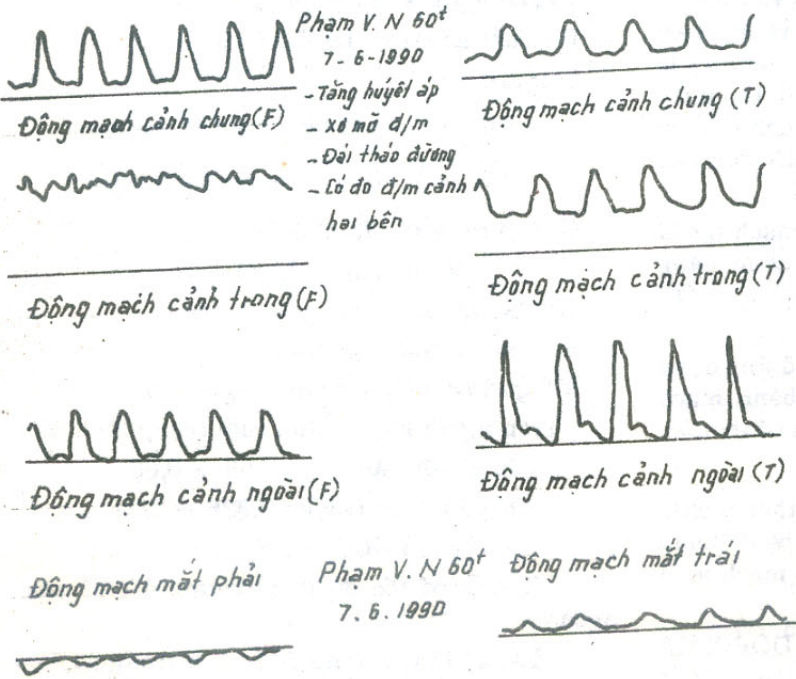 Phạm V. N 60t
7-6-1990
- Tăng huyết áp
- Xơ mỡ đ/m
- Đái tháo đường
- Có đo đ/m cảnh
hai bên
Động mạch cảnh chung (F)
Động mạch cảnh chung (T)
Động mạch cảnh trong (F)
Động mạch cảnh trong (T)
Động mạch cảnh ngoài (F)
Động mạch cảnh ngoài (T)
Động mạch mắt phải
Phạm V. N 60t
7.6.1990
Động mạch mắt trái